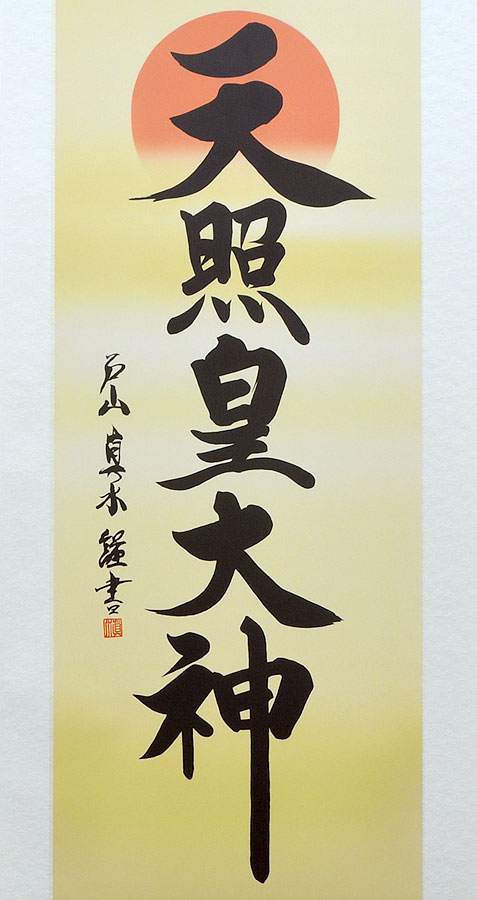 天照皇大神
戸山真水謹書